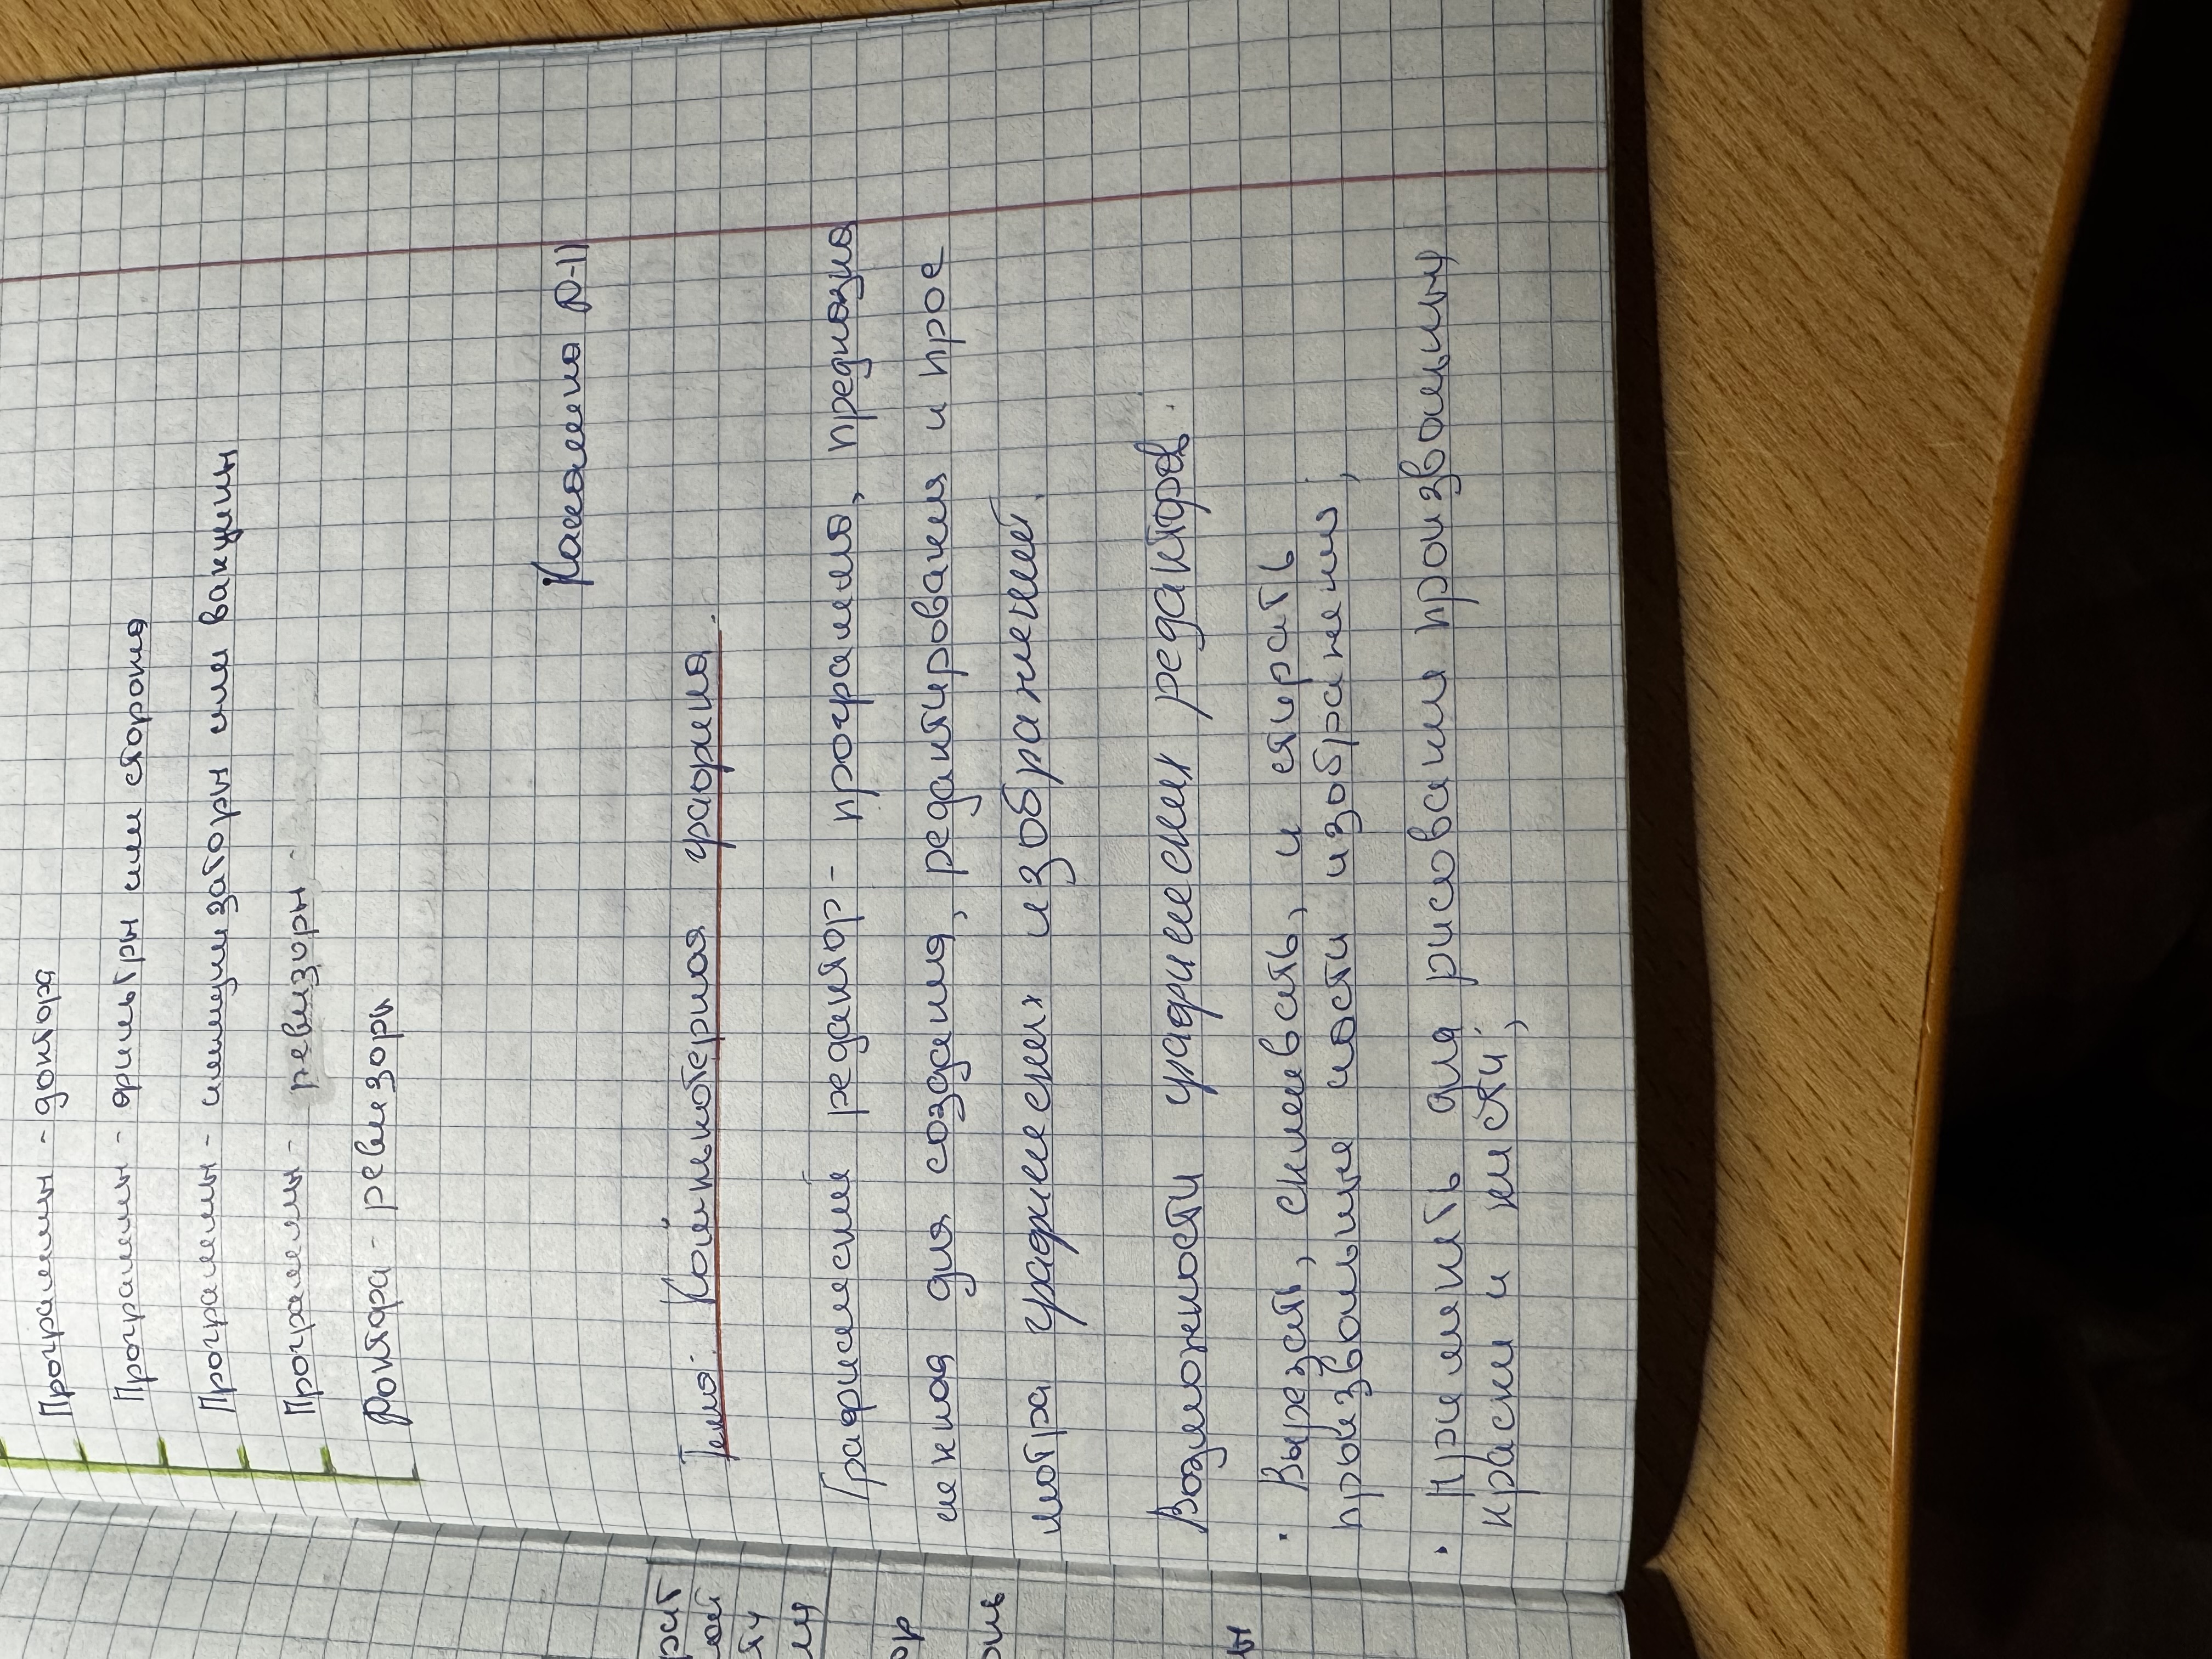 Программы - доктора
Программы - фильтры или сторожа
Программы - иммунизаторы или вакцины
Программы - ревизоры
Доктора - ревизоры
Тема: Компьютерная графика.
Графический редактор - программа, предназна
ченная для создания, редактирования и прос
мотра графических изображений.
Возможности графических редакторов.
· Вырезать, склеивать, и стирать
произвольные части изображения;
· Применять для рисования произвольны
краски и кисти;